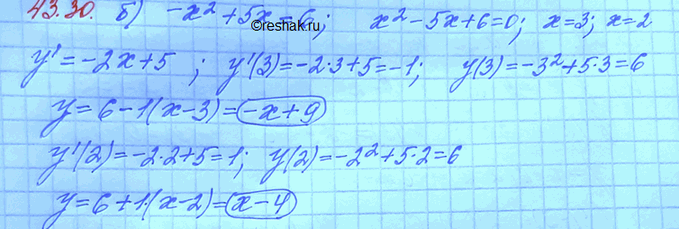 43.30. б) -x² + 5x = 6; x² - 5x + 6 = 0; x = 3; x = 2
©reshak.ru
y' = -2x + 5 ; y'(3) = -2·3 + 5 = -1; y(3) = -3² + 5·3 = 6
y = 6 - 1(x - 3) = -x + 9
y'(2) = -2·2 + 5 = 1; y(2) = -2² + 5·2 = 6
y = 6 + 1·(x - 2) = x - 4